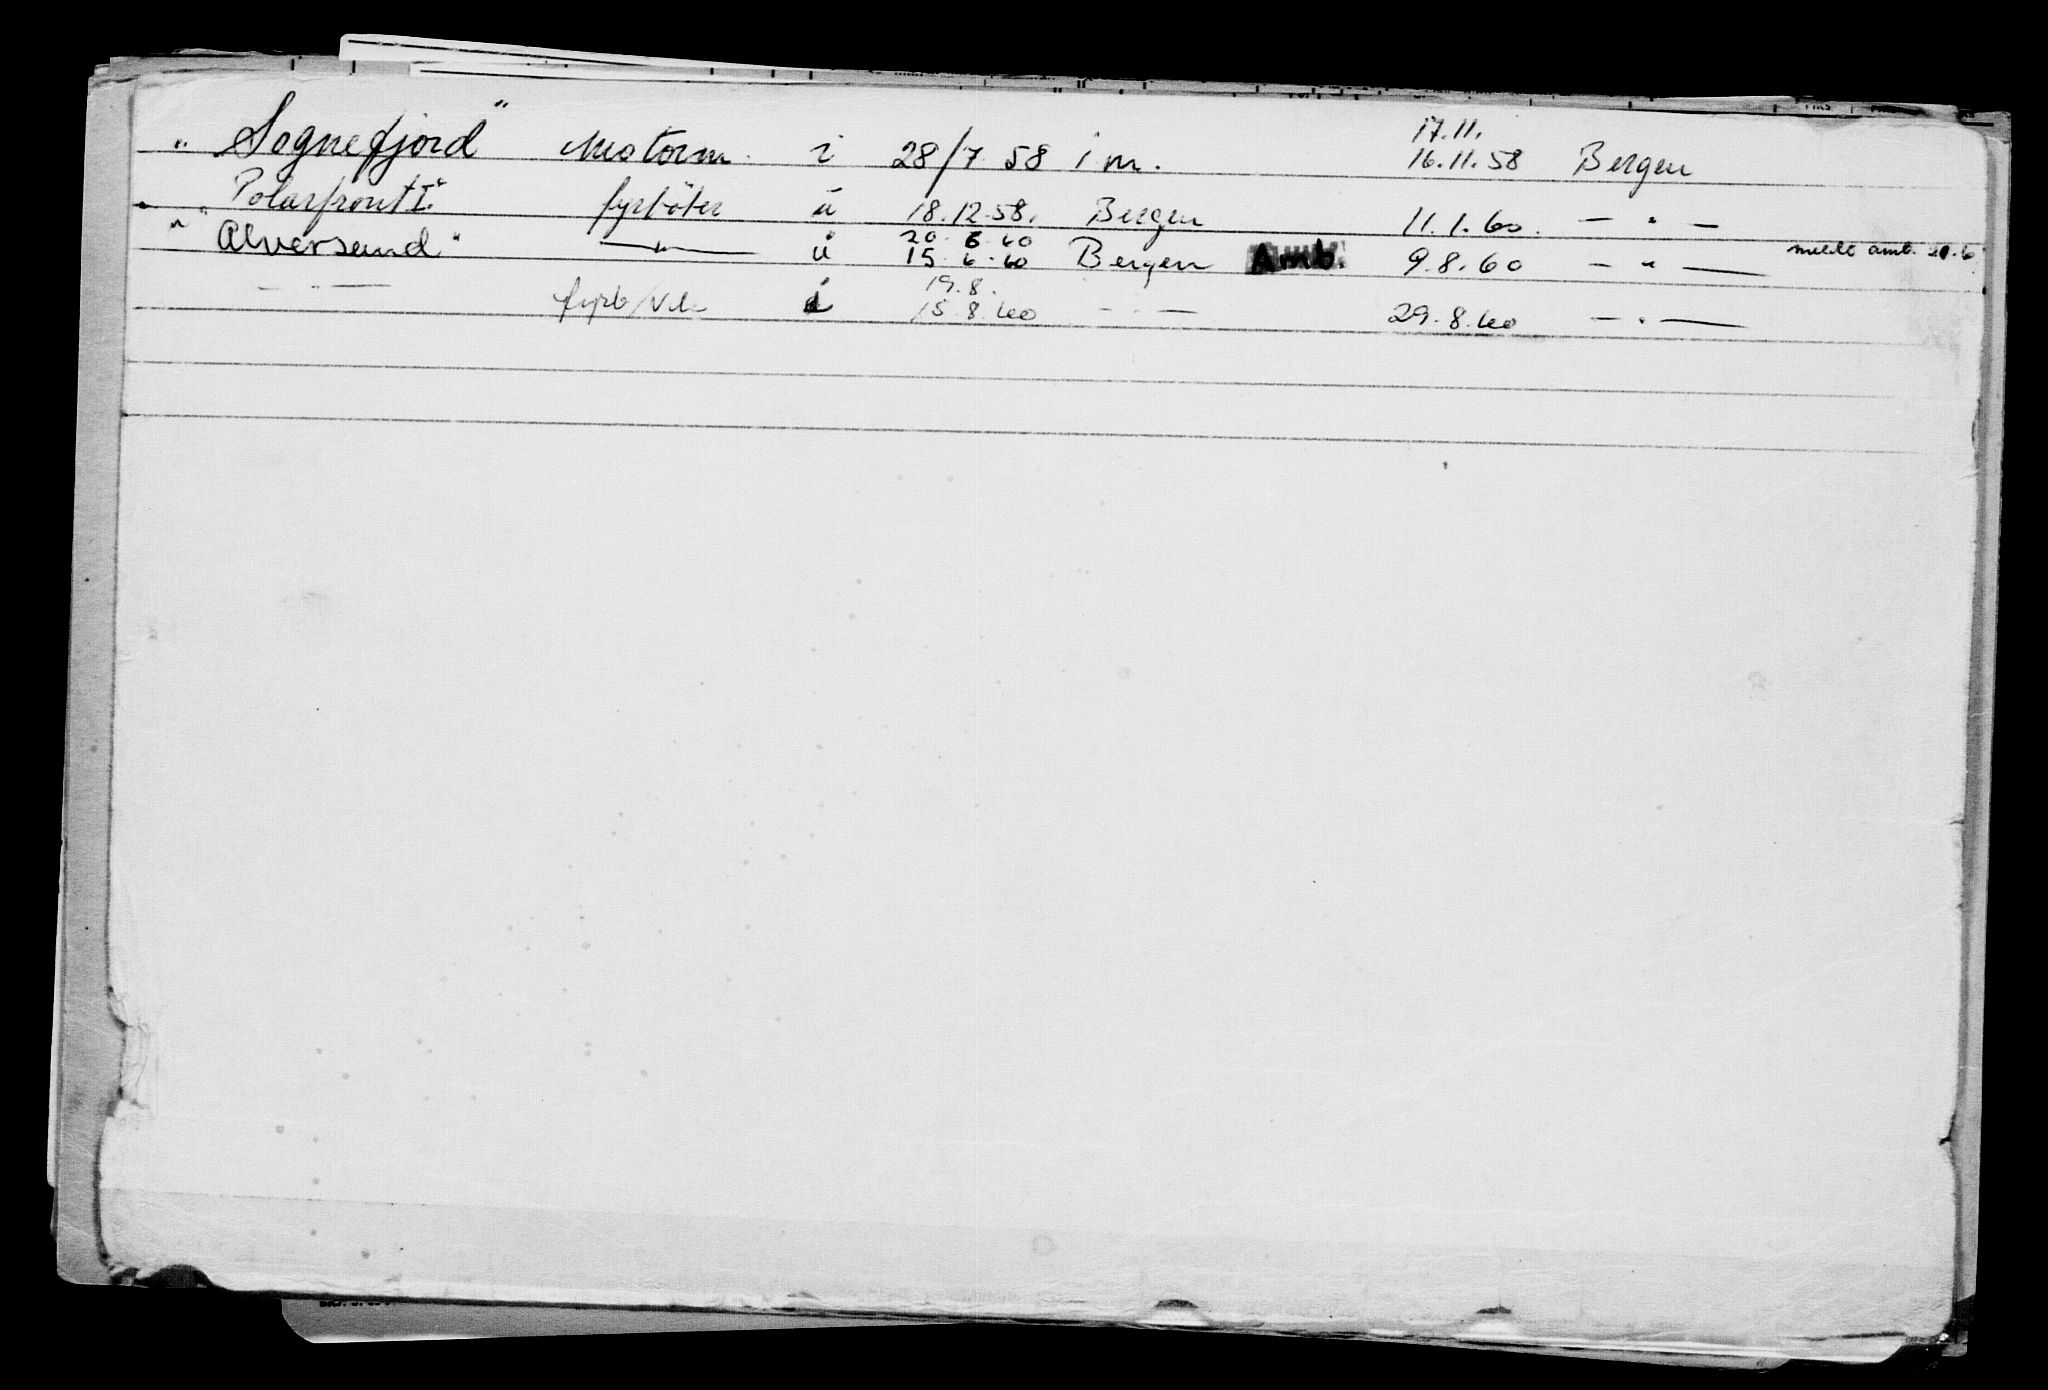 17.11.
" "Sognefjord" Motorm. i 28/7 58 i m. 16.11.58 Bergen
" Polarfront I" fyrböter u 18.12.58. Bergen 11.1.60. — " —
20.6.60
" "Alversund" — " — u 15.6.60 Bergen Amb. 9.8.60 — " — meldt amb. 20.6
19.8.
— " — fyrb/ i 15.8.60 — " — 29.8.60 — " —